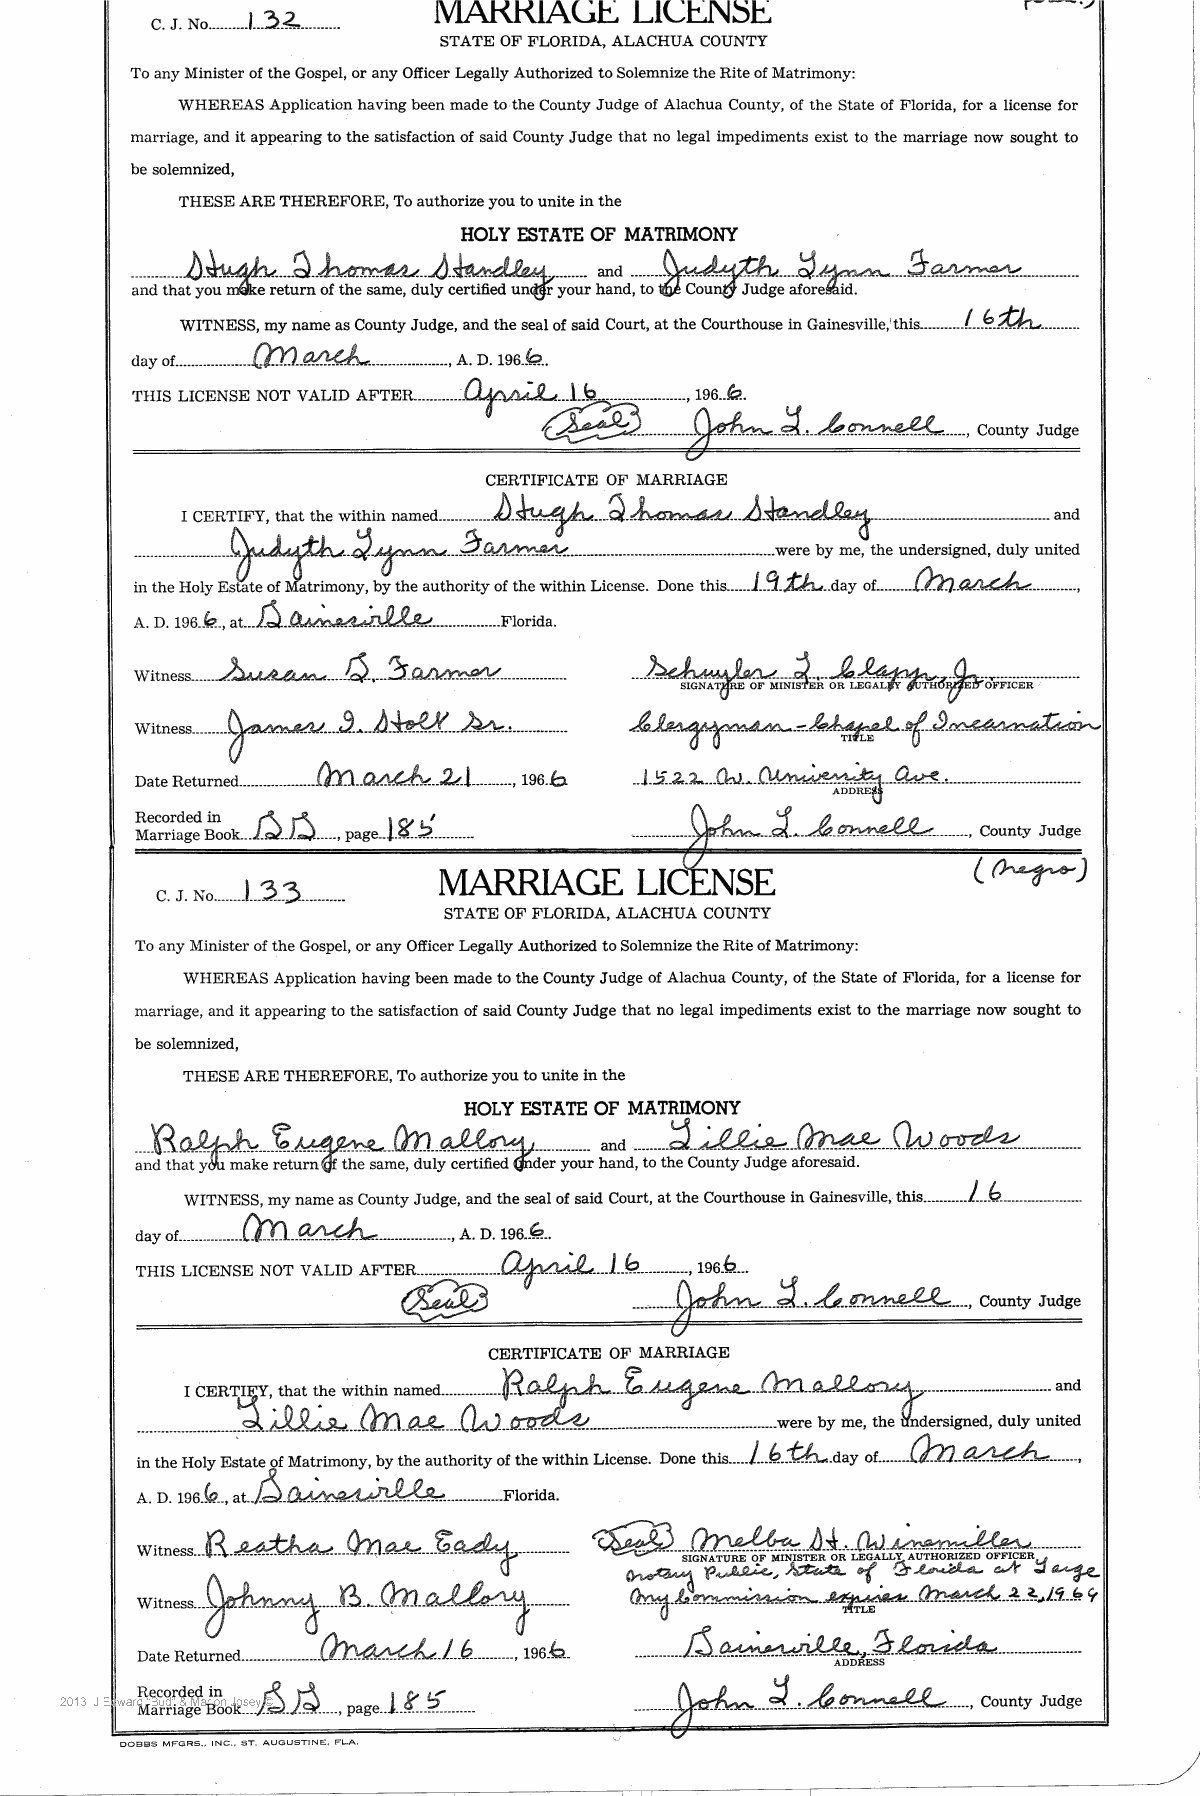 C. J. No. 132
MARRIAGE LICENSE
STATE OF FLORIDA, ALACHUA COUNTY
To any Minister of the Gospel, or any Officer Legally Authorized to Solemnize the Rite of Matrimony:
WHEREAS Application having been made to the County Judge of Alachua County, of the State of Florida, for a license for
marriage, and it appearing to the satisfaction of said County Judge that no legal impediments exist to the marriage now sought to
be solemnized,
THESE ARE THEREFORE, To authorize you to unite in the
HOLY ESTATE OF MATRIMONY
Hugh Thomas Standley and Judyth Lynn Farmer
and that you make return of the same, duly certified under your hand, to the County Judge aforesaid.
WITNESS, my name as County Judge, and the seal of said Court, at the Courthouse in Gainesville, this 16th
day of March, A. D. 1966.
THIS LICENSE NOT VALID AFTER April 16, 1966.
(Seal) John L. Connell, County Judge
CERTIFICATE OF MARRIAGE
I CERTIFY, that the within named Hugh Thomas Standley and
Judyth Lynn Farmer were by me, the undersigned, duly united
in the Holy Estate of Matrimony, by the authority of the within License. Done this 19th day of March,
A. D. 1966, at Gainesville Florida.
Witness Susan G. Farmer Schuyler L. Clapp, Jr.
SIGNATURE OF MINISTER OR LEGALLY AUTHORIZED OFFICER
Witness James I. Holt Sr. Clergyman - Chapel of Incarnation
TITLE
Date Returned March 21, 1966 1522 W. University Ave.
ADDRESS
Recorded in
Marriage Book BB, page 185 John L. Connell, County Judge
(Negro)
C. J. No. 133
MARRIAGE LICENSE
STATE OF FLORIDA, ALACHUA COUNTY
To any Minister of the Gospel, or any Officer Legally Authorized to Solemnize the Rite of Matrimony:
WHEREAS Application having been made to the County Judge of Alachua County, of the State of Florida, for a license for
marriage, and it appearing to the satisfaction of said County Judge that no legal impediments exist to the marriage now sought to
be solemnized,
THESE ARE THEREFORE, To authorize you to unite in the
HOLY ESTATE OF MATRIMONY
Ralph Eugene Mallory and Lillie Mae Woods
and that you make return of the same, duly certified under your hand, to the County Judge aforesaid.
WITNESS, my name as County Judge, and the seal of said Court, at the Courthouse in Gainesville, this 16
day of March, A. D. 1966.
THIS LICENSE NOT VALID AFTER April 16, 1966.
(Seal) John L. Connell, County Judge
CERTIFICATE OF MARRIAGE
I CERTIFY, that the within named Ralph Eugene Mallory and
Lillie Mae Woods were by me, the undersigned, duly united
in the Holy Estate of Matrimony, by the authority of the within License. Done this 16th day of March,
A. D. 1966, at Gainesville Florida.
Witness Reatha Mae Eady (Seal) Melba H. Winemiller
SIGNATURE OF MINISTER OR LEGALLY AUTHORIZED OFFICER
Notary Public, State of Florida at Large
Witness Johnny B. Mallory My Commission expires March 22, 1969
TITLE
Date Returned March 16, 1966 Gainesville, Florida
ADDRESS
Recorded in
Marriage Book BB, page 185 John L. Connell, County Judge
2013 J Edward "Bud" & Marion Josey ©
DOBBS MFGRS., INC., ST. AUGUSTINE, FLA.